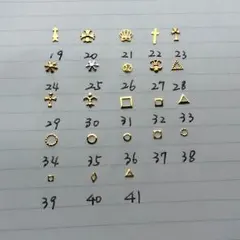 19 20 21 22 23
24 25 26 27 28
29 30 31 32 33
34 35 36 37 38
39 40 41